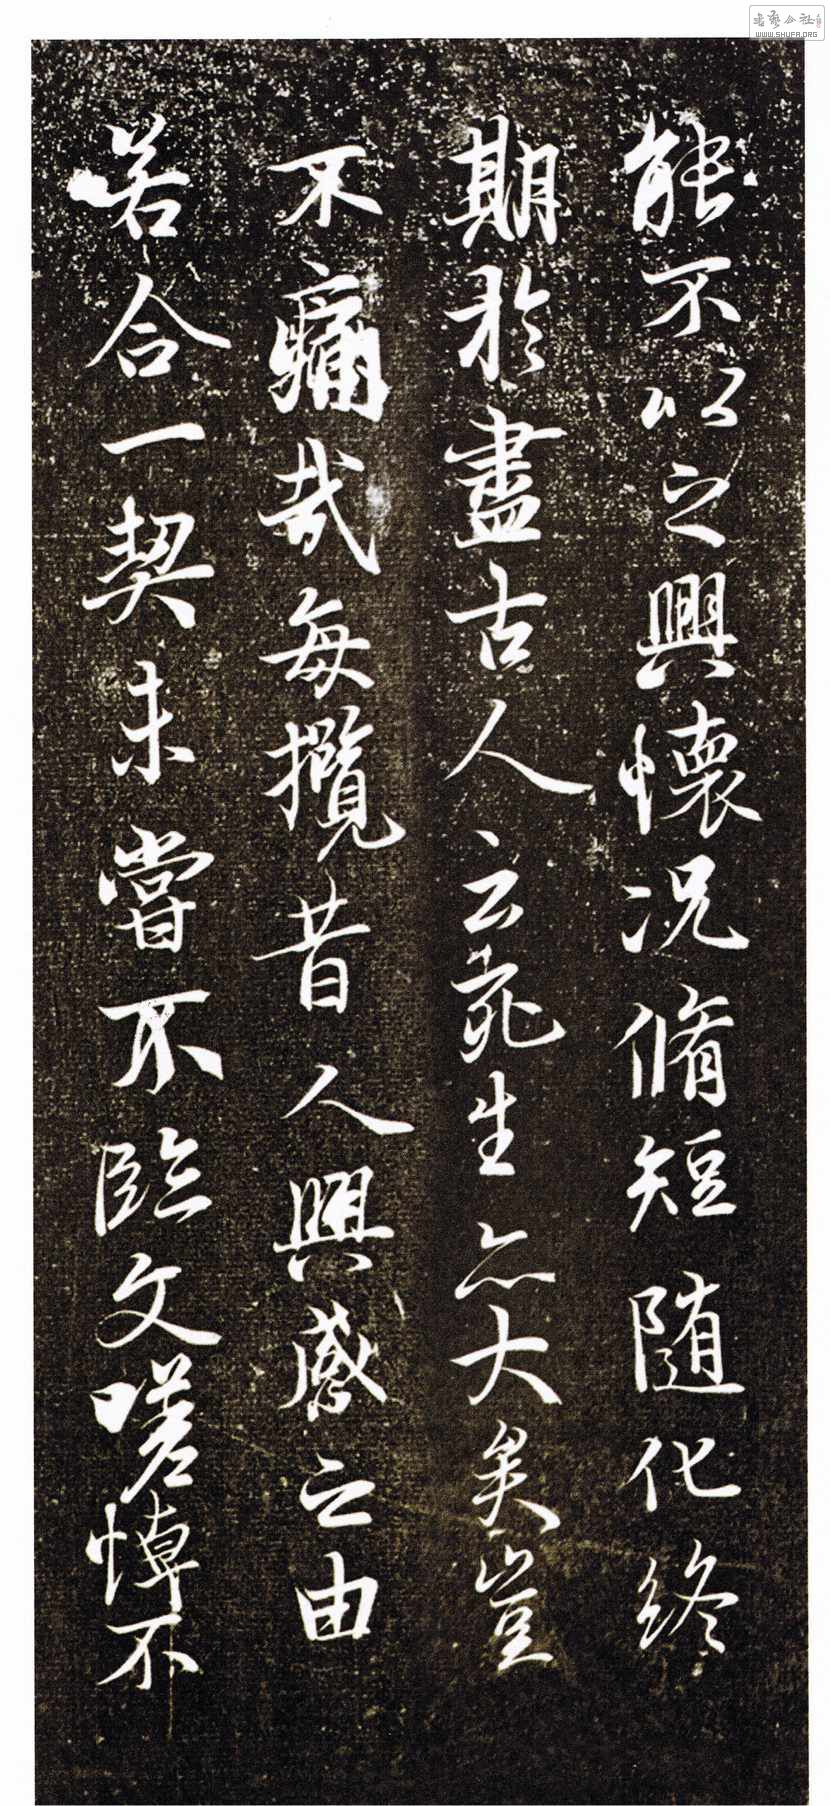 能不以之興懷況脩短隨化終
期於盡古人云死生亦大矣豈
不痛哉每攬昔人興感之由
若合一契未嘗不臨文嗟悼不
書藝公社
WWW.SHUFA.ORG